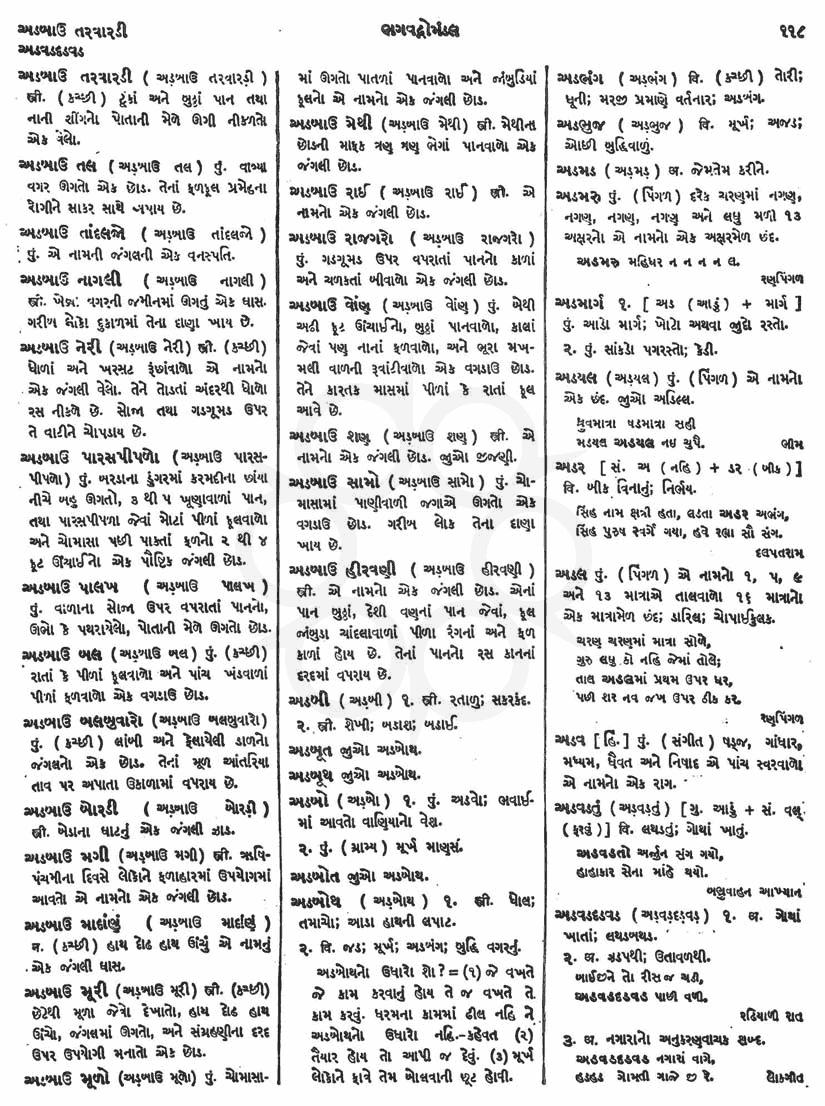 અડબાઉ તરવારડી
ભગવદ્ગોમંડલ
૧૧૮
અડવડદડવડ
અડબાઉ તરવારડી ( અડ્બાઉ તરવારડી )
સ્ત્રી. (કચ્છી) ટૂંકાં અને બુઠ્ઠાં પાન તથા
નાની શીંગનો પોતાની મેળે ઊગી નીકળતો
એક વેલો.
અડબાઉ તલ (અડ્બાઉ તલ) પું. વાવ્યા
વગર ઊગતો એક છોડ. તેનાં ફળફૂલ પ્રમેહના
રોગીને સાકર સાથે અપાય છે.
અડબાઉ તાંદલજો ( અડ્બાઉ તાંદલજો )
પું. એ નામની જંગલની એક વનસ્પતિ.
અડબાઉ નાગલી ( અડ્બાઉ નાગલી )
સ્ત્રી. ખેડ્યા વગરની જમીનમાં ઊગતું એક ઘાસ.
ગરીબ લોકો દુકાળમાં તેના દાણા ખાય છે.
અડબાઉ નેરી (અડ્બાઉ નેરી) સ્ત્રી. (કચ્છી)
ધોળાં અને ખરસટ રૂંછાંવાળા એ નામનો
એક જંગલી વેલો. તેને તોડતાં અંદરથી ધોળો
રસ નીકળે છે. સોજા તથા ગડગૂમડ ઉપર
તે વાટીને ચોપડાય છે.
અડબાઉ પારસપીપળો (અડ્બાઉ પારસ-
પીપળો) પું. બરડાના ડુંગરમાં કરમદીના છાંયા
નીચે બહુ ઊગતો, ૩ થી ૫ ખૂણાવાળાં પાન,
તથા પારસપીપળા જેવાં મોટાં પીળાં ફૂલવાળો
અને ચોમાસા પછી પાકતાં ફળનો ૨ થી ૪
ફૂટ ઊંચાઈનો એક પૌષ્ટિક જંગલી છોડ.
અડબાઉ પાલખ ( અડ્બાઉ પાલખ )
પું. વાળાના સોજા ઉપર વપરાતાં પાનનો,
ઊભો કે પથરાયેલો, પોતાની મેળે ઊગતો છોડ.
અડબાઉ બલ (અડ્બાઉ બલ) પું. (કચ્છી)
રાતાં કે પીળાં ફૂલવાળો અને પાંચ ખંડવાળાં
પીળાં ફળવાળો એક વગડાઉ છોડ.
અડબાઉ બલબુવારો (અડ્બાઉ બલબુવારો)
પું. (કચ્છી) લાંબી અને ફેલાયેલી ડાળનો
જંગલનો એક છોડ. તેનાં મૂળ આંતરિયા
તાવ પર અપાતા ઉકાળામાં વપરાય છે.
અડબાઉ બોરડી ( અડ્બાઉ બોરડી )
સ્ત્રી. બેડાના ઘાટનું એક જંગલી ઝાડ.
અડબાઉ મગી (અડ્બાઉ મગી) સ્ત્રી. ઋષિ-
પંચમીના દિવસે લોકોને ફળાહારમાં ઉપયોગમાં
આવતો એ નામનો એક જંગલી છોડ.
અડબાઉ માદાંણું ( અડ્બાઉ માદાંણું )
ન. (કચ્છી) હાથ દોઢ હાથ ઊંચું એ નામનું
એક જંગલી ઘાસ.
અડબાઉ મૂરી (અડ્બાઉ મૂરી) સ્ત્રી. (કચ્છી)
છેટેથી મૂળા જેવો દેખાતો, હાથ દોઢ હાથ
ઊંચો, જંગલમાં ઊગતો, અને સંગ્રહણીના દરદ
ઉપર ઉપયોગી મનાતો એક છોડ.
અડબાઉ મૂળો (અડ્બાઉ મૂળો) પું. ચોમાસા-
માં ઊગતો પાતળાં પાનવાળો અને જાંબુડિયાં
ફૂલનો એ નામનો એક જંગલી છોડ.
અડબાઉ મેથી (અડ્બાઉ મેથી) સ્ત્રી. મેથીના
છોડની માફક ત્રણ ત્રણ ભેગાં પાનવાળો એક
જંગલી છોડ.
અડબાઉ રાઈ ( અડ્બાઉ રાઈ ) સ્ત્રી. એ
નામનો એક જંગલી છોડ.
અડબાઉ રાજગરો ( અડ્બાઉ રાજગરો )
પું. ગડગૂમડ ઉપર વપરાતાં પાનનો કાળાં
અને ચળકતાં બીવાળો એક જંગલી છોડ.
અડબાઉ વોંણુ (અડ્બાઉ વોંણુ) પું. બેથી
અઢી ફૂટ ઊંચાઈનો, બુઠ્ઠાં પાનવાળો, કાલાં
જેવાં પણ નાનાં ફળવાળો, અને ભૂરા મખ-
મલી વાળની રૂવાંટીવાળો એક વગડાઉ છોડ.
તેને કારતક માસમાં પીળાં કે રાતાં ફૂલ
આવે છે.
અડબાઉ શણ (અડ્બાઉ શણ) સ્ત્રી. એ
નામનો એક જંગલી છોડ. જુઓ જીજણી.
અડબાઉ સામો (અડ્બાઉ સામો) પું. ચો-
માસામાં પાણીવાળી જગાએ ઊગતો એક
વગડાઉ છોડ. ગરીબ લોક તેના દાણા
ખાય છે.
અડબાઉ હીરવણી ( અડ્બાઉ હીરવણી )
સ્ત્રી. એ નામનો એક જંગલી છોડ. એનાં
પાન બુઠ્ઠાં, દેશી વણનાં પાન જેવાં, ફૂલ
જાંબુડા ચાંદલાવાળાં પીળા રંગનાં અને ફળ
કાળાં હોય છે. તેનાં પાનનો રસ કાનનાં
દરદમાં વપરાય છે.
અડબી (અડ્બી) ૧. સ્ત્રી. રતાળુ; સકરકંદ.
૨. સ્ત્રી. શેખી; બડાશ; બડાઈ.
અડબૂત જુઓ અડબોથ.
અડબૂથ જુઓ અડબોથ.
અડબો (અડ્બો) ૧. પું. અડવો; ભવાઈ-
માં આવતો વાણિયાનો વેશ.
૨. પું. (ગ્રામ્ય) મૂર્ખ માણસ.
અડબોત જુઓ અડબોથ.
અડબોથ (અડ્બોથ) ૧. સ્ત્રી. ધોલ;
તમાચો; આડા હાથની લપાટ.
૨. વિ. જડ; મૂર્ખ; અડબંગ; બુદ્ધિ વગરનું.
અડબોથનો ઉધારો શો? = (૧) જે વખતે
જે કામ કરવાનું હોય તે જ વખતે તે
કામ કરવું. ધરમના કામમાં ઢીલ નહિ ને
અડબોથનો ઉધારો નહિ.-કહેવત (૨)
તૈયાર હોય તો આપી જ દેવું. (૩) મૂર્ખ
લોકોને ફાવે તેમ બોલવાની છૂટ હોવી.
અડભંગ (અડ્ભંગ) વિ. (કચ્છી) તોરી;
ધૂની; મરજી પ્રમાણે વર્તનાર; અડબંગ.
અડભુજ (અડ્ભુજ) વિ. મૂર્ખ; અજડ;
ઓછી બુદ્ધિવાળું.
અડમડ (અડ્મડ્) અ. જેમતેમ કરીને.
અડમરુ પું. (પિંગળ) દરેક ચરણમાં નગણ,
નગણ, નગણ, નગણ અને લઘુ મળી ૧૩
અક્ષરનો એ નામનો એક અક્ષરમેળ છંદ.
અડમરુ મહિધર ન ન ન ન લ.
રણપિંગળ
અડમાર્ગ ૧. [ અડ (આડું) + માર્ગ ]
પું. આડો માર્ગ; ખોટો અથવા જુદો રસ્તો.
૨. પું. સાંકડો પગરસ્તો; કેડી.
અડયલ (અડ્યલ) પું. (પિંગળ) એ નામનો
એક છંદ. જુઓ અડિલ્લ.
ધ્રુવમાત્રા ષડમાત્રા સહી
મડયલ અડયલ નષ ચુપૈ.
ભીમ
અડર [ સં. અ (નહિ) + ડર (બીક) ]
વિ. બીક વિનાનું; નિર્ભય.
સિંહ નામ ક્ષત્રી હતા, લડતા અડર અભંગ,
સિંહ પુરુષ સ્વર્ગે ગયા, હવે રહ્યા સૌ સંગ.
દલપતરામ
અડલ પું. (પિંગળ) એ નામનો ૧, ૫, ૯
અને ૧૩ માત્રાએ તાલવાળો ૧૬ માત્રાનો
એક માત્રામેળ છંદ; ડારિલ; ચોપાઈકુલક.
ચરણ ચરણમાં માત્રા સોળે,
ગુરુ લઘુ કો નહિ જેમાં તોલે;
તાલ અડલમાં પ્રથમ ઉપર ધર,
પછી શર નવ જખ ઉપર ઠીક કર.
રણપિંગળ
અડવ [હિં.] પું. (સંગીત) ષડ્જ, ગાંધાર,
મધ્યમ, ધૈવત અને નિષાદ એ પાંચ સ્વરવાળો
એ નામનો એક રાગ.
અડવડતું (અડ્વડતું) [ગુ. આડું + સં. વલ્
(ફરવું)] વિ. લથડતું; ગોથાં ખાતું.
અડવડતો અર્જુન સંગ ગયો,
હાહાકાર સેના માંહે થયો.
બભ્રુવાહન આખ્યાન
અડવડદડવડ (અડ્વડ્દડ્વડ્) ૧. અ. ગોથાં
ખાતાં; લથડબથડ.
૨. અ. ઝડપથી; ઉતાવળથી.
બાઈઈને તો રીસ જ ચડી,
અડવડદડવડ પાછી વળી.
રઢિયાળી રાત
૩. અ. નગારાનો અનુકરણવાચક શબ્દ.
અડવડદડવડ નગારાં વાગે,
હડહડ ગોમતી ગાજે છ રે.
લોકગીત